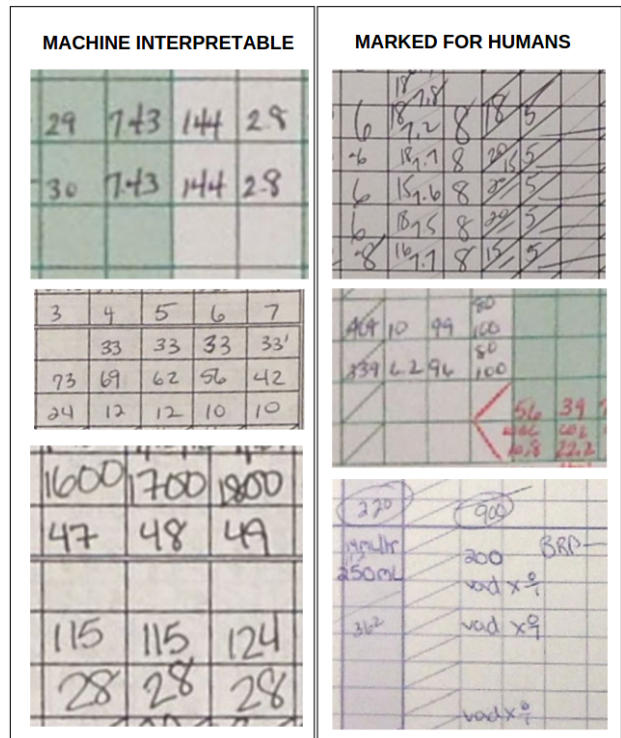 MACHINE INTERPRETABLE
29 7.43 144 2.8
30 7.43 144 2.8
3 4 5 6 7
33 33 33 33'
73 69 62 56 42
24 12 12 10 10
1600 1700 1800
47 48 49
115 115 124
28 28 28
MARKED FOR HUMANS
18 7.8
6 18 7.2 8 18 5
6 18 7.7 8 20 15 5
6 15 7.6 8 20 5
6 18 7.5 8 20 5
8 16 7.7 8 15 5
80
469 10 99 100
80
339 62 96 100
56 39
22.2
220 900
250mL 200 BRP
vad x
362 vad x
vad x